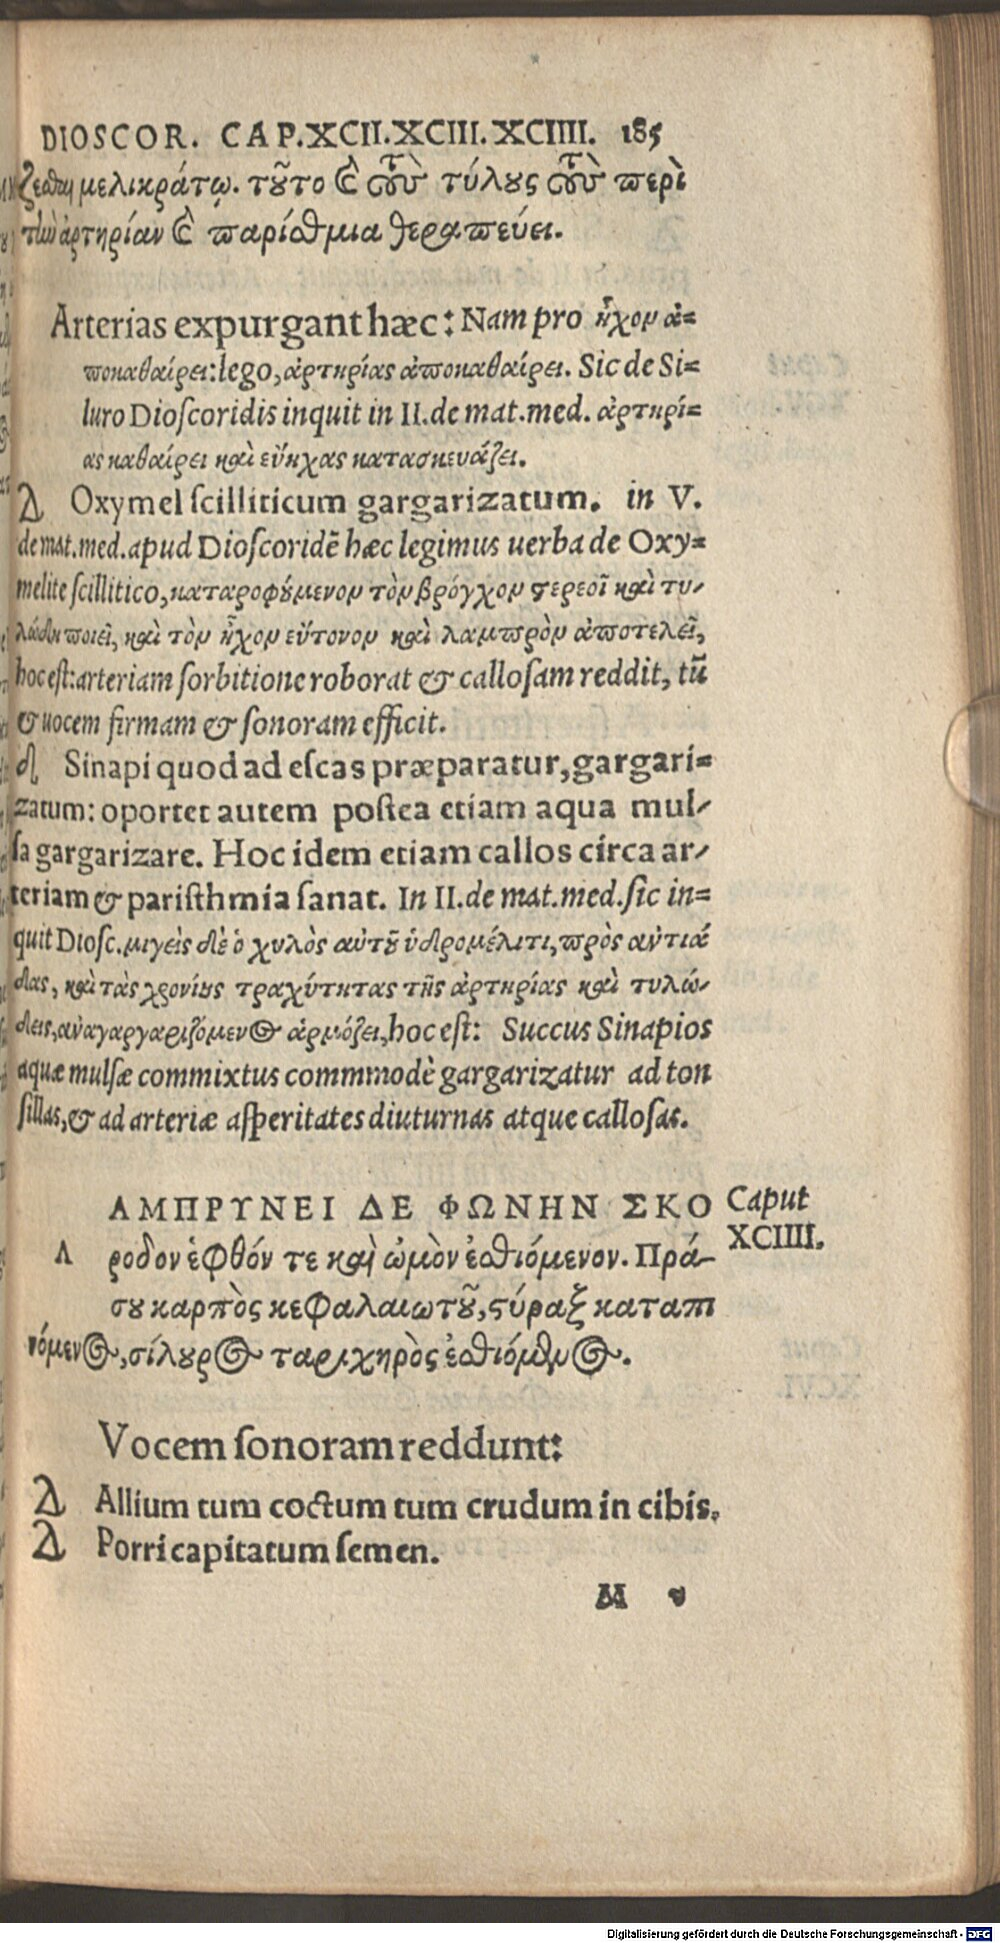 DIOSCOR. CAP.XCII.XCIII.XCIIII. 185
ζεσθαι μελικράτῳ. τοῦτο καὶ σὺν τοὺς τύλους τοὺς περὶ
τὴν ἀρτηρίαν καὶ παρίσθμια θεραπεύει.
Arterias expurgant hæc: Nam pro ἦχον ἀ=
ποκαθαίρει: lego, ἀρτηρίας ἀποκαθαίρει. Sic de Si=
luro Dioſcoridis inquit in II. de mat.med. ἀρτηρί=
ας καθαίρει καὶ εὐήχας κατασκευάζει.
Δ Oxymel ſcilliticum gargarizatum. in V.
de mat.med.apud Dioſcoridẽ hæc legimus uerba de Oxy=
melite ſcillitico, καταροφούμενον τὸν βρόγχον στερεοῖ καὶ τυ-
λώδη ποιεῖ, καὶ τὸν ἦχον εὔτονον καὶ λαμπρὸν ἀποτελεῖ,
hoc eſt: arteriam ſorbitione roborat & calloſam reddit, tũ
& uocem firmam & ſonoram efficit.
δ Sinapi quod ad eſcas præparatur, gargari=
zatum: oportet autem poſtea etiam aqua mul-
ſa gargarizare. Hoc idem etiam callos circa ar-
teriam & pariſthmia ſanat. In II.de mat.med.ſic in=
quit Dioſc. μιγεὶς δὲ ὁ χυλὸς αὐτοῦ ὑδρομέλιτι, πρὸς ἀντιά
δας, καὶ τὰς χρονίους τραχύτητας τῆς ἀρτηρίας καὶ τυλώ-
δεις, ἀναγαργαριζόμενος ἁρμόζει, hoc eſt: Succus Sinapios
aquæ mulſæ commixtus commmodè gargarizatur ad ton
ſillas, & ad arteriæ aſperitates diuturnas atque calloſas.
ΑΜΠΡΥΝΕΙ ΔΕ ΦΩΝΗΝ ΣΚΟ
Caput
XCIIII.
Λ ροδον ἑφθόν τε καὶ ὠμὸν ἐσθιόμενον. Πρά-
σου καρπὸς κεφαλαιωτοῦ, στύραξ καταπι
νόμενος, σίλουρος ταριχηρὸς ἐσθιόμενος.
Vocem ſonoram reddunt:
Δ Allium tum coctum tum crudum in cibis.
Δ Porri capitatum ſemen.
M v
Digitalisierung gefördert durch die Deutsche Forschungsgemeinschaft - DFG